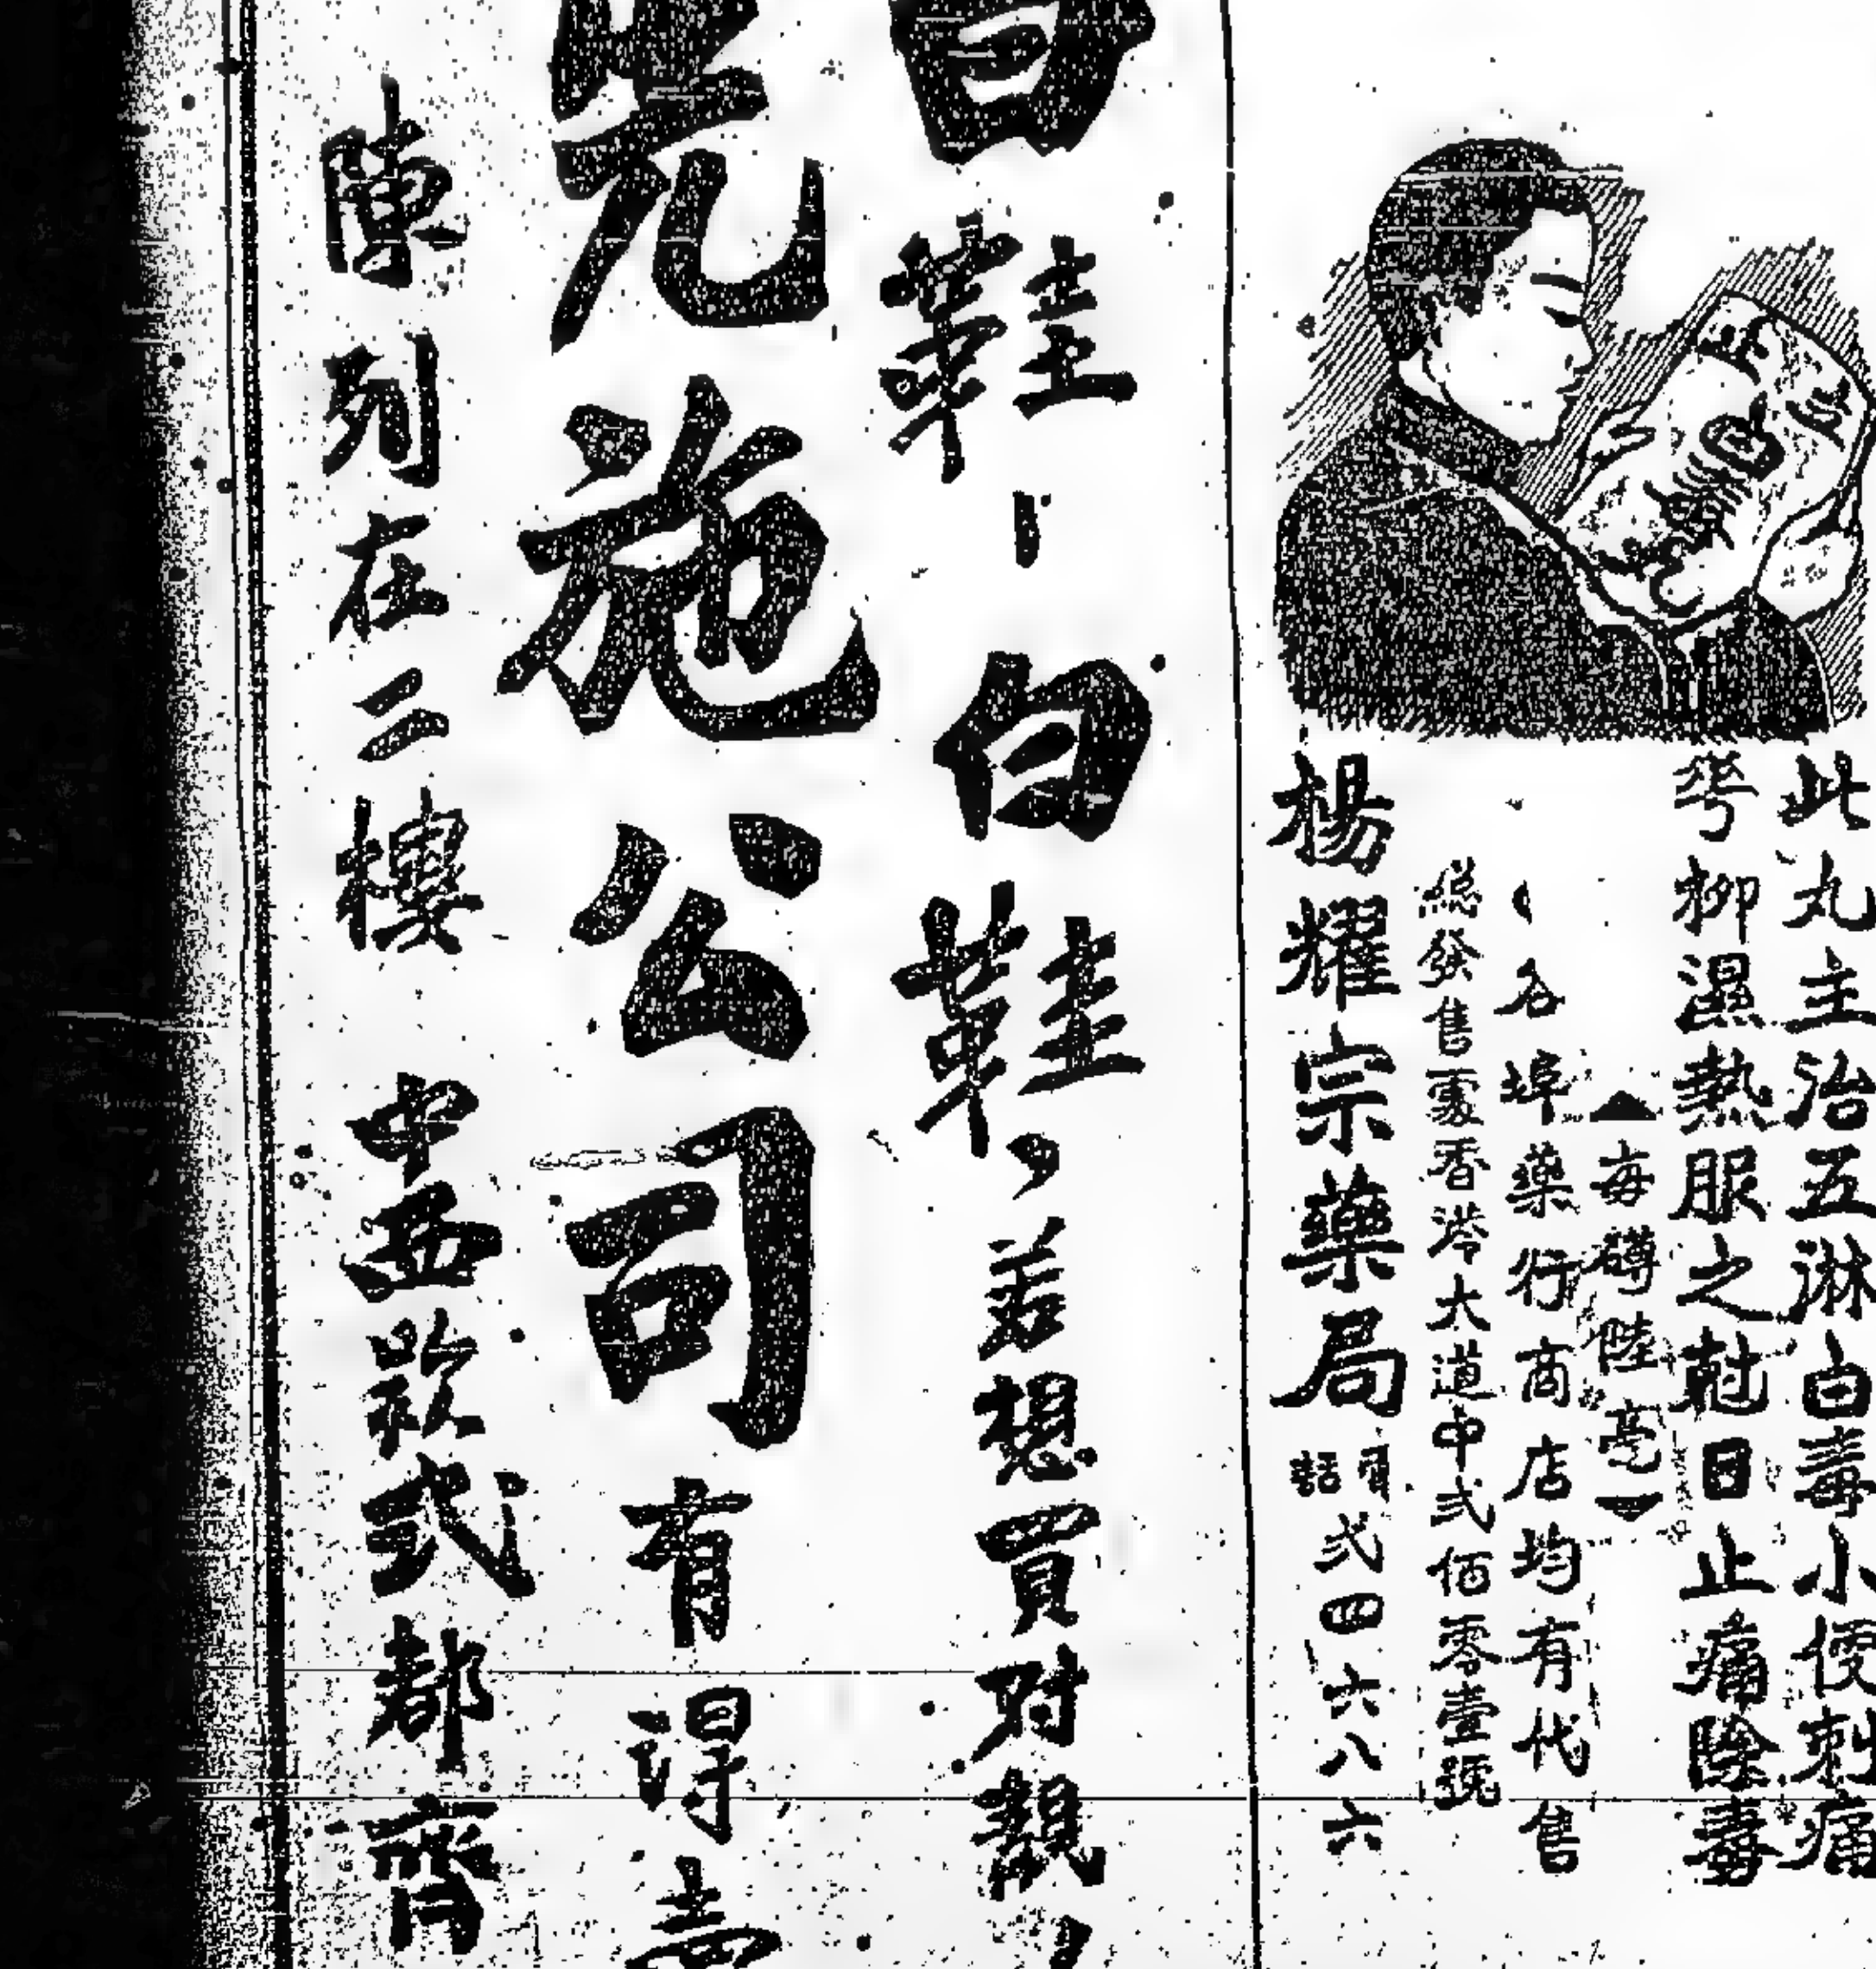 此丸主治五淋白毒小便刺痛
花柳濕熱服之尅日止痛除毒
▲每磚陸毫▼
各埠藥行商店均有代售
總發售處香港大道中弍佰零壹號
楊耀宗藥局 電話弍四六八六
白鞋、白鞋、若想買對靚
先施公司有得賣
陳列在二樓 中西欵式都齊